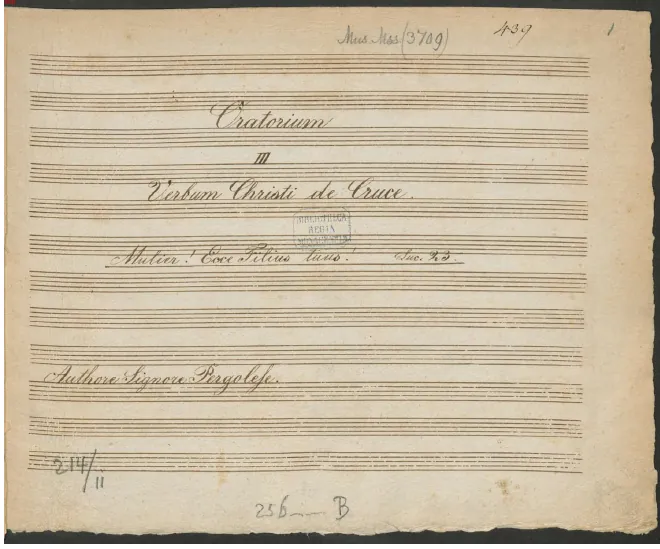 Mus. Mss (3709)
439
1
Oratorium
III
Verbum Christi de Cruce.
BIBLIOTHECA
REGIA
MONACENSIS
Mulier! Ecce Filius tuus! Luc. 23.
Authore Signore Pergolese.
214/ii
256 — B